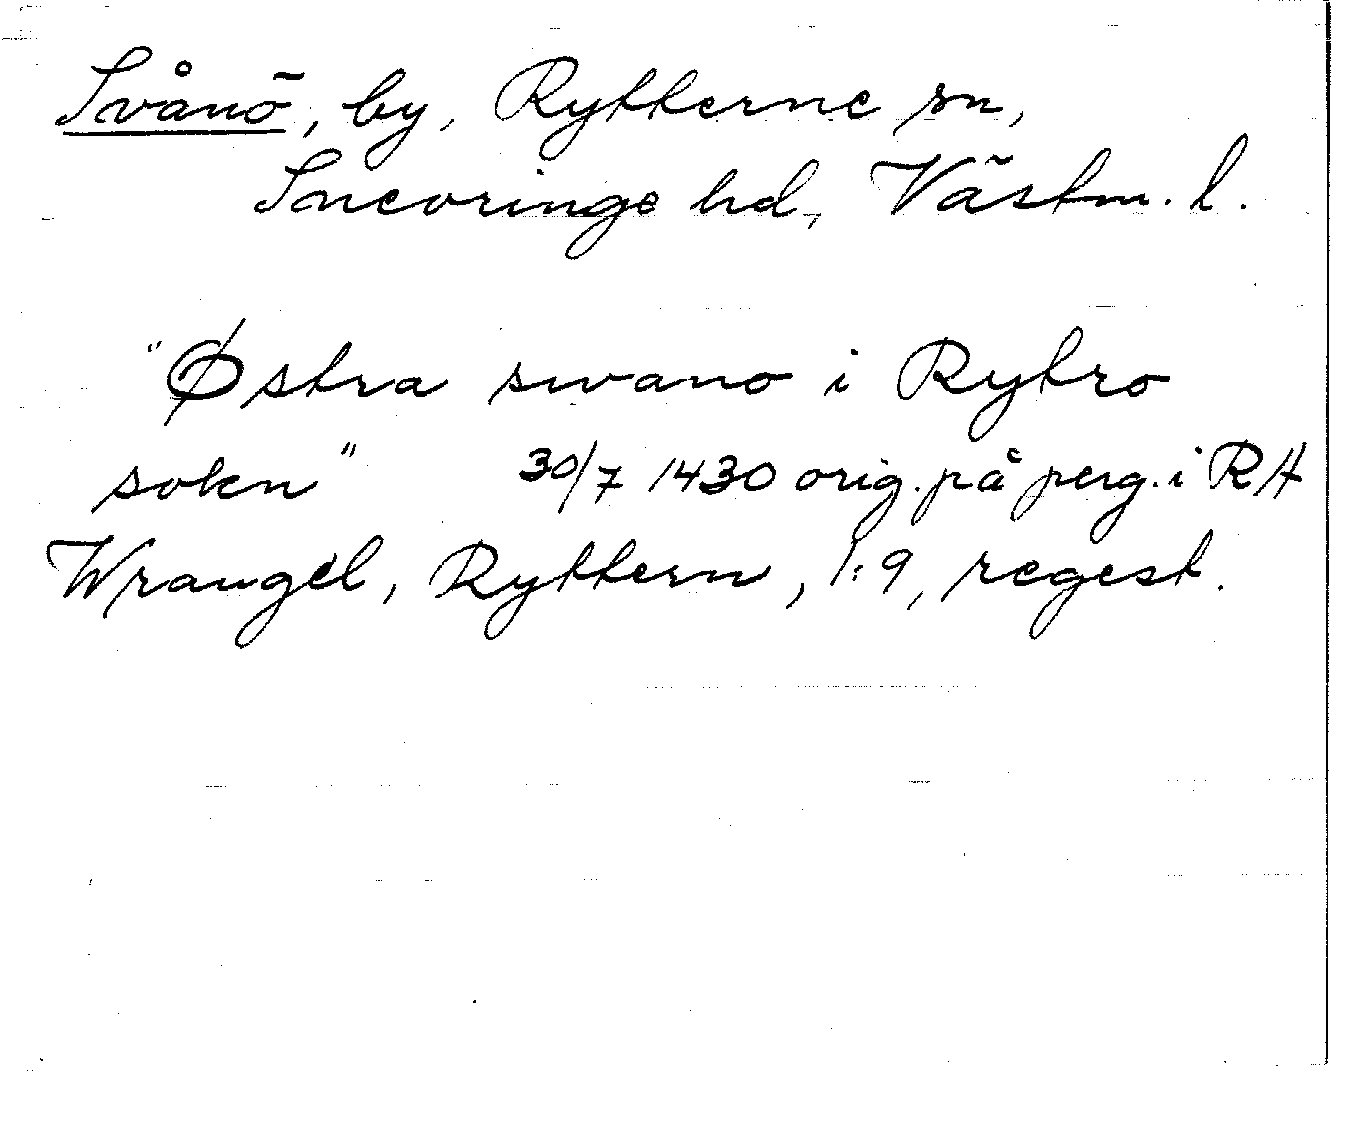 Svånö, by, Rytterne sn,
Snevringe hd, Västm. l.
"Østra swano i Rytro
sokn" 30/7 1430 orig. på perg. i RA
Wrangel, Ryttern, 1:9, regest.